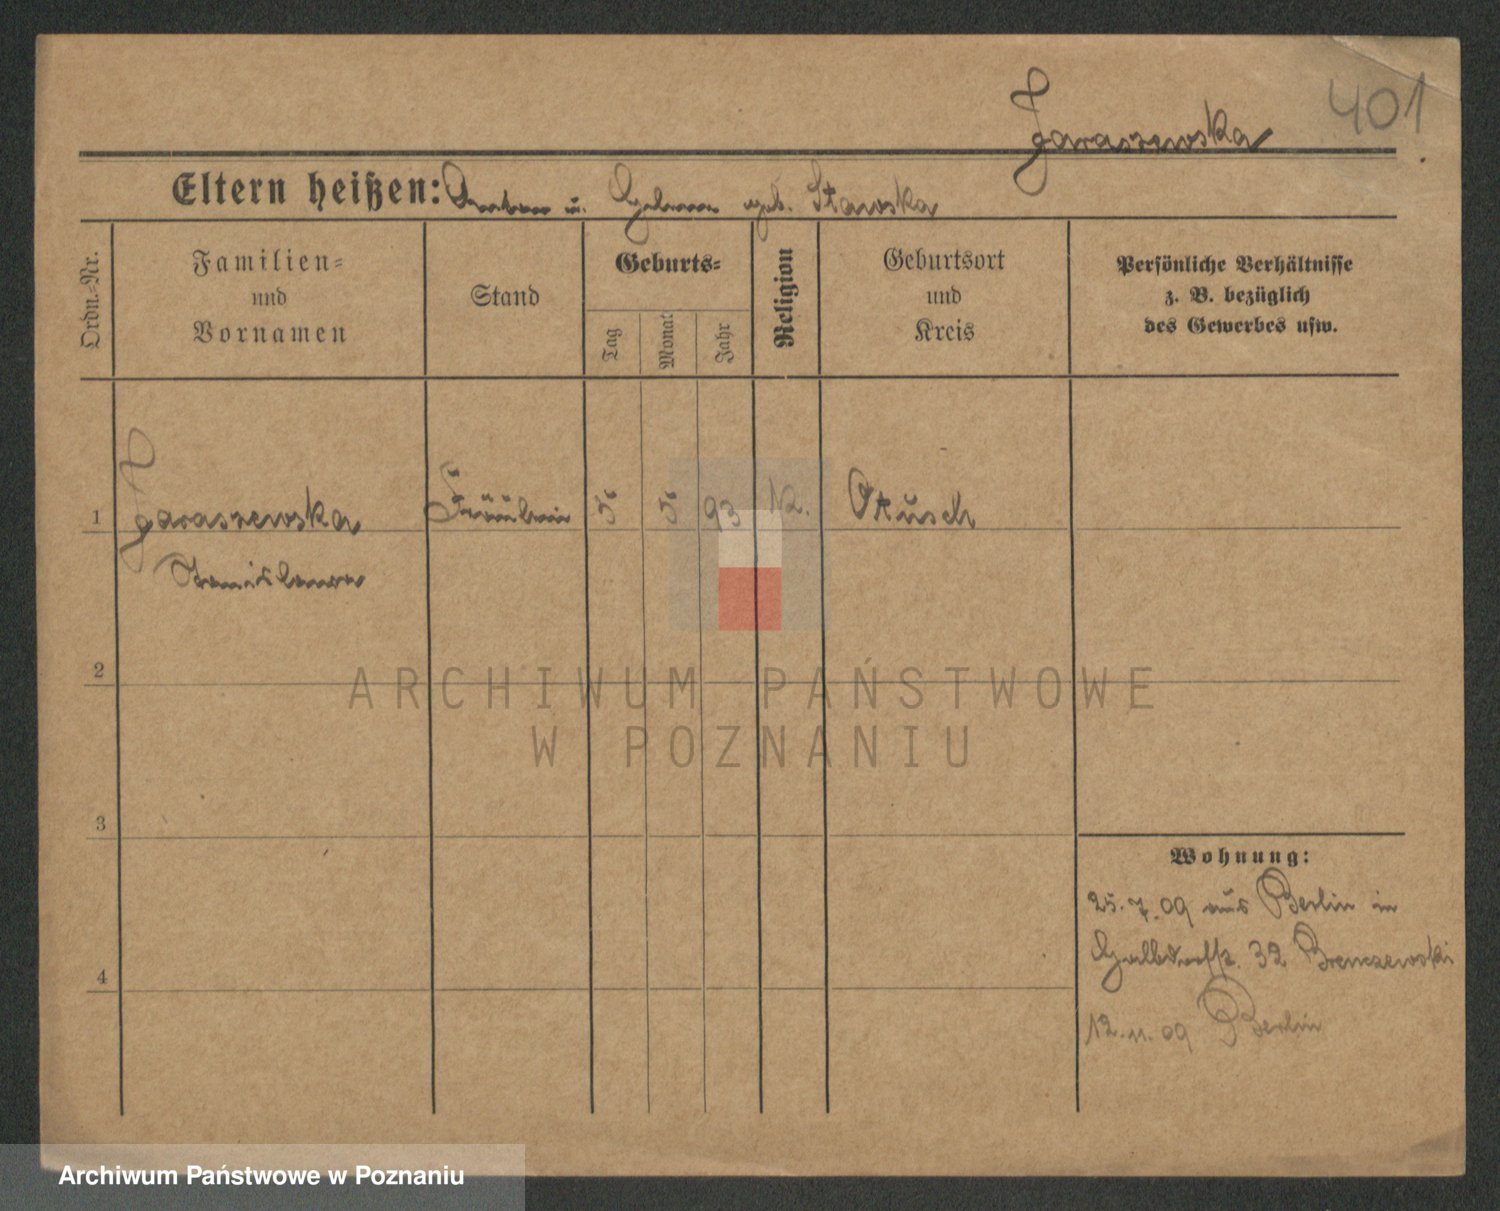 401
Jaraszewska
Eltern heißen: Anton u. geb. Stawska
Ordn.=Nr.
Familien=
und
Vornamen
Stand
Geburts=
Tag
Monat
Jahr
Religion
Geburtsort
und
Kreis
Persönliche Verhältnisse
z. B. bezüglich
des Gewerbes usw.
1 Jaraszewska Fräulein 5 5 93 K. Otusch
Stanislawa
2
3
4
Wohnung:
25.7.09 aus Berlin in
32 Brenczewski
12.11.09 Berlin
ARCHIWUM PAŃSTWOWE
W POZNANIU
Archiwum Państwowe w Poznaniu